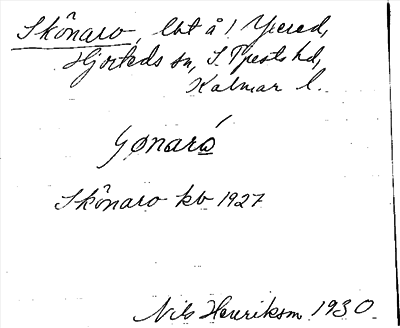 Skönaro, lht å 1 Yxered,
Hjorteds sn, S. Tjusts hd,
Kalmar l.
Skönaro kb 1927
Nils Henriksson 1930.